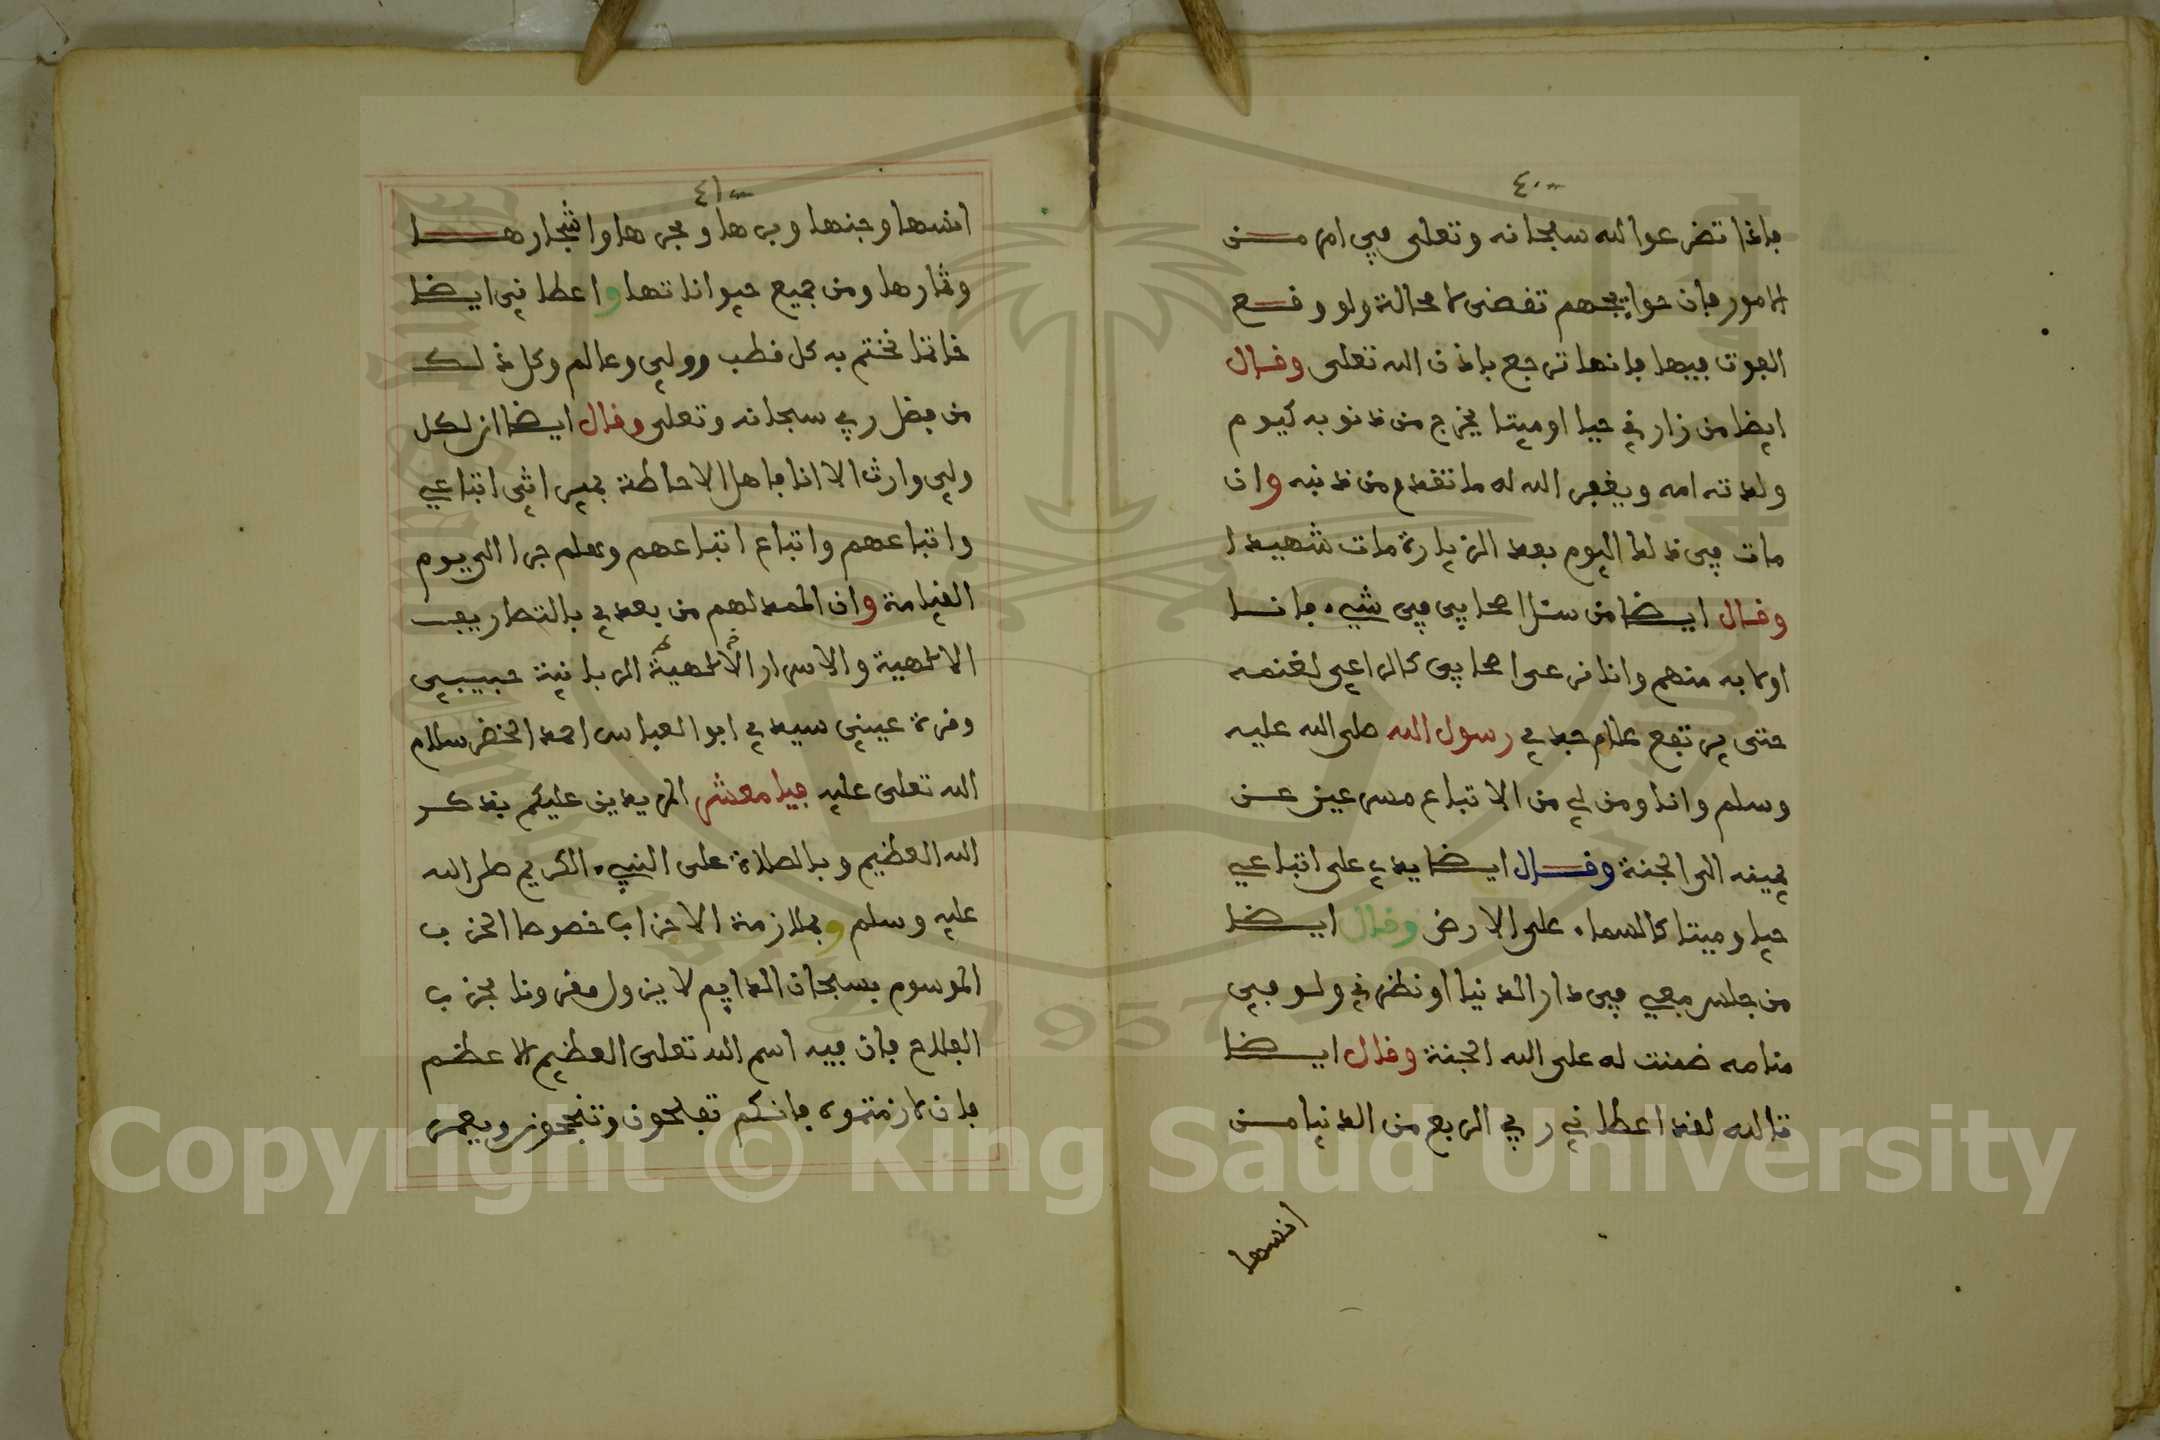 ٤٠
فاذا تضرعوا لله سبحانه وتعلى في امر مــن
الامور فان حوايجهم تقضى لا محالة ولو وقــع
الفوت فيها فانها ترجع باذن الله تعلى وقــال
ايضا من زارني حيا او ميتا يخرج من ذنوبه كيوم
ولدته امه ويغفر الله له ما تقدم من ذنبه وان
مات في ذلك اليوم بعد الزيارة مات شهيدا
وقــال ايــضا من سئل اصحابي في شيء فانــا
اولا به منهم وانا نرعى اصحابي كالراعي لغنمه
حتى يرتفع علام جدي رسول الله صلى الله عليه
وسلم وانا ومن لي من الاتباع مسرعين عــن
يمينه الى الجنة وقــال ايــضا يدي على اتباعي
حيا وميتا كالسماء على الارض وقال ايــضا
من جلس معي في دار الدنيا او نظرني ولــو في
منامه ضمنت له على الله الجنة وقال ايــضا
تالله لقد اعطاني ربي الربع من الدنيا مــن
انسها
٤١
انسها وجنها وبرها وبحرها واشجارهــا
وثمارها ومن جميع حيواناتها واعطاني ايــضا
خاتما نختم به كل قطب وولي وعالم وكل ذلــك
من فضل ربي سبحانه وتعلى وقال ايــضا ان لكل
ولي وارث الا انا فاهل الاحاطة بميراثي اتباعي
واتباعهم واتباع اتباعهم وهلم جرا الى يوم
القيامة وان الممد لهم من بعدي بالتصاريف
الالهية والاسرار الالهية الربانية حبيبي
وقرة عيني سيدي ابو العباس احمد الخضر سلام
الله تعلى عليه فيا معشر المريدين عليكم بذكــر
الله العظيم وبالصلاة على النبيء الكريم صلى الله
عليه وسلم وبملازمة الاحزاب خصوصا الحزب
الموسوم بسبحان الدايم لا يزول مقرونا بحزب
الفلاح فان فيه اسم الله تعلى العظيم الاعظم
فان لازمتموه فانــكم تفلحون وتنجحون ويعمر
Copyright © King Saud University
1957